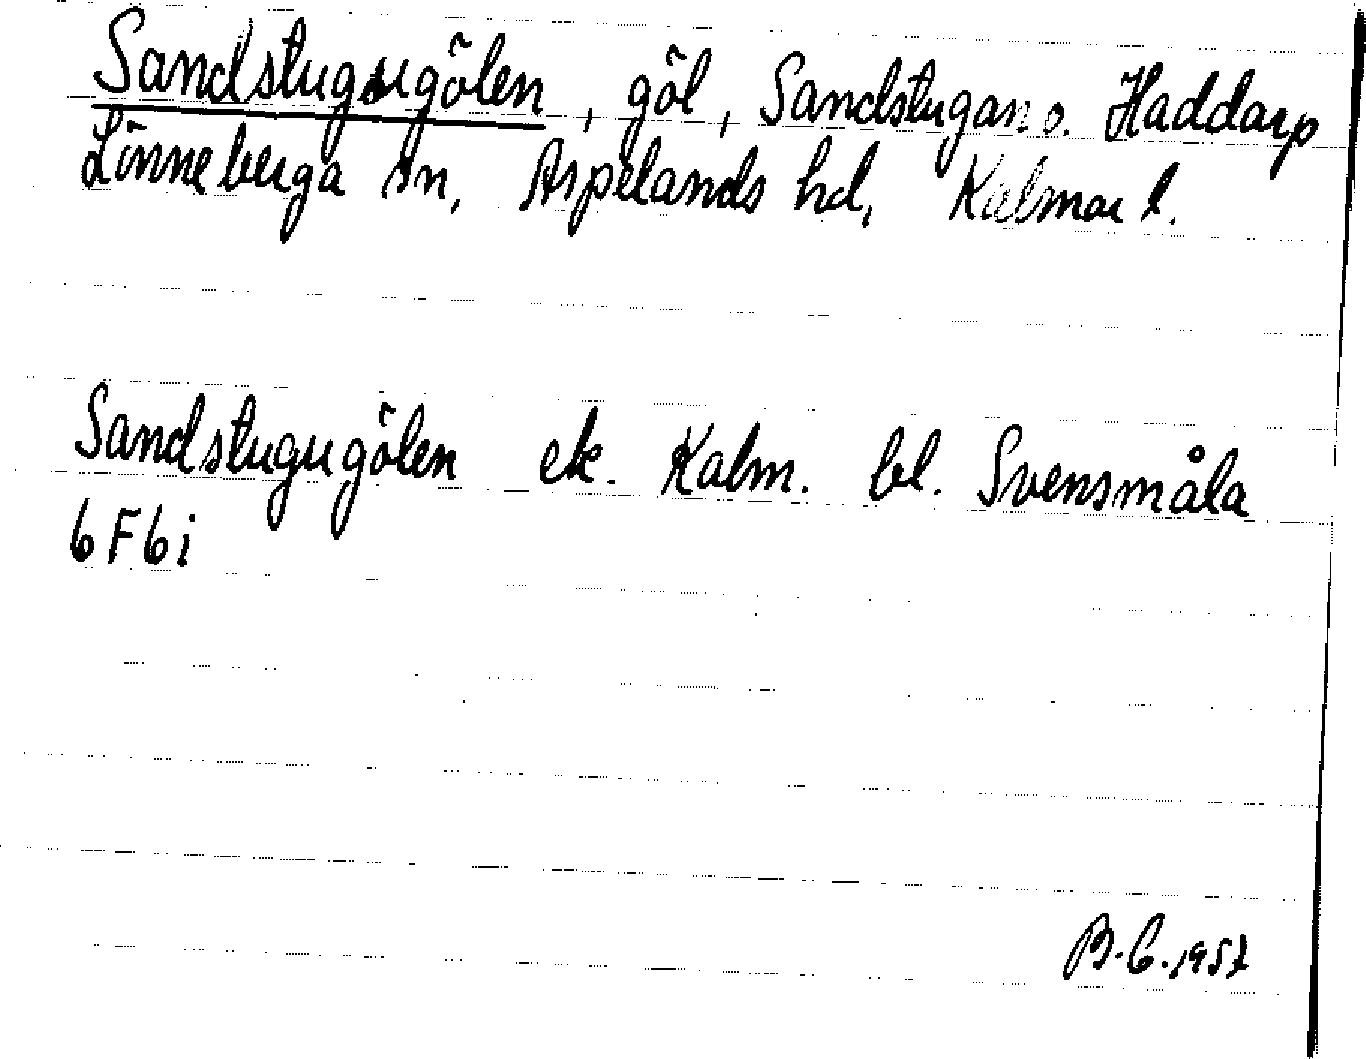 Sandstugugölen, göl, Sandstugan o. Haddarp
Lönneberga sn, Aspelands hd, Kalmar l.
Sandstugugölen ek. Kalm. bl. Svensmåla
6F6i
B.C.